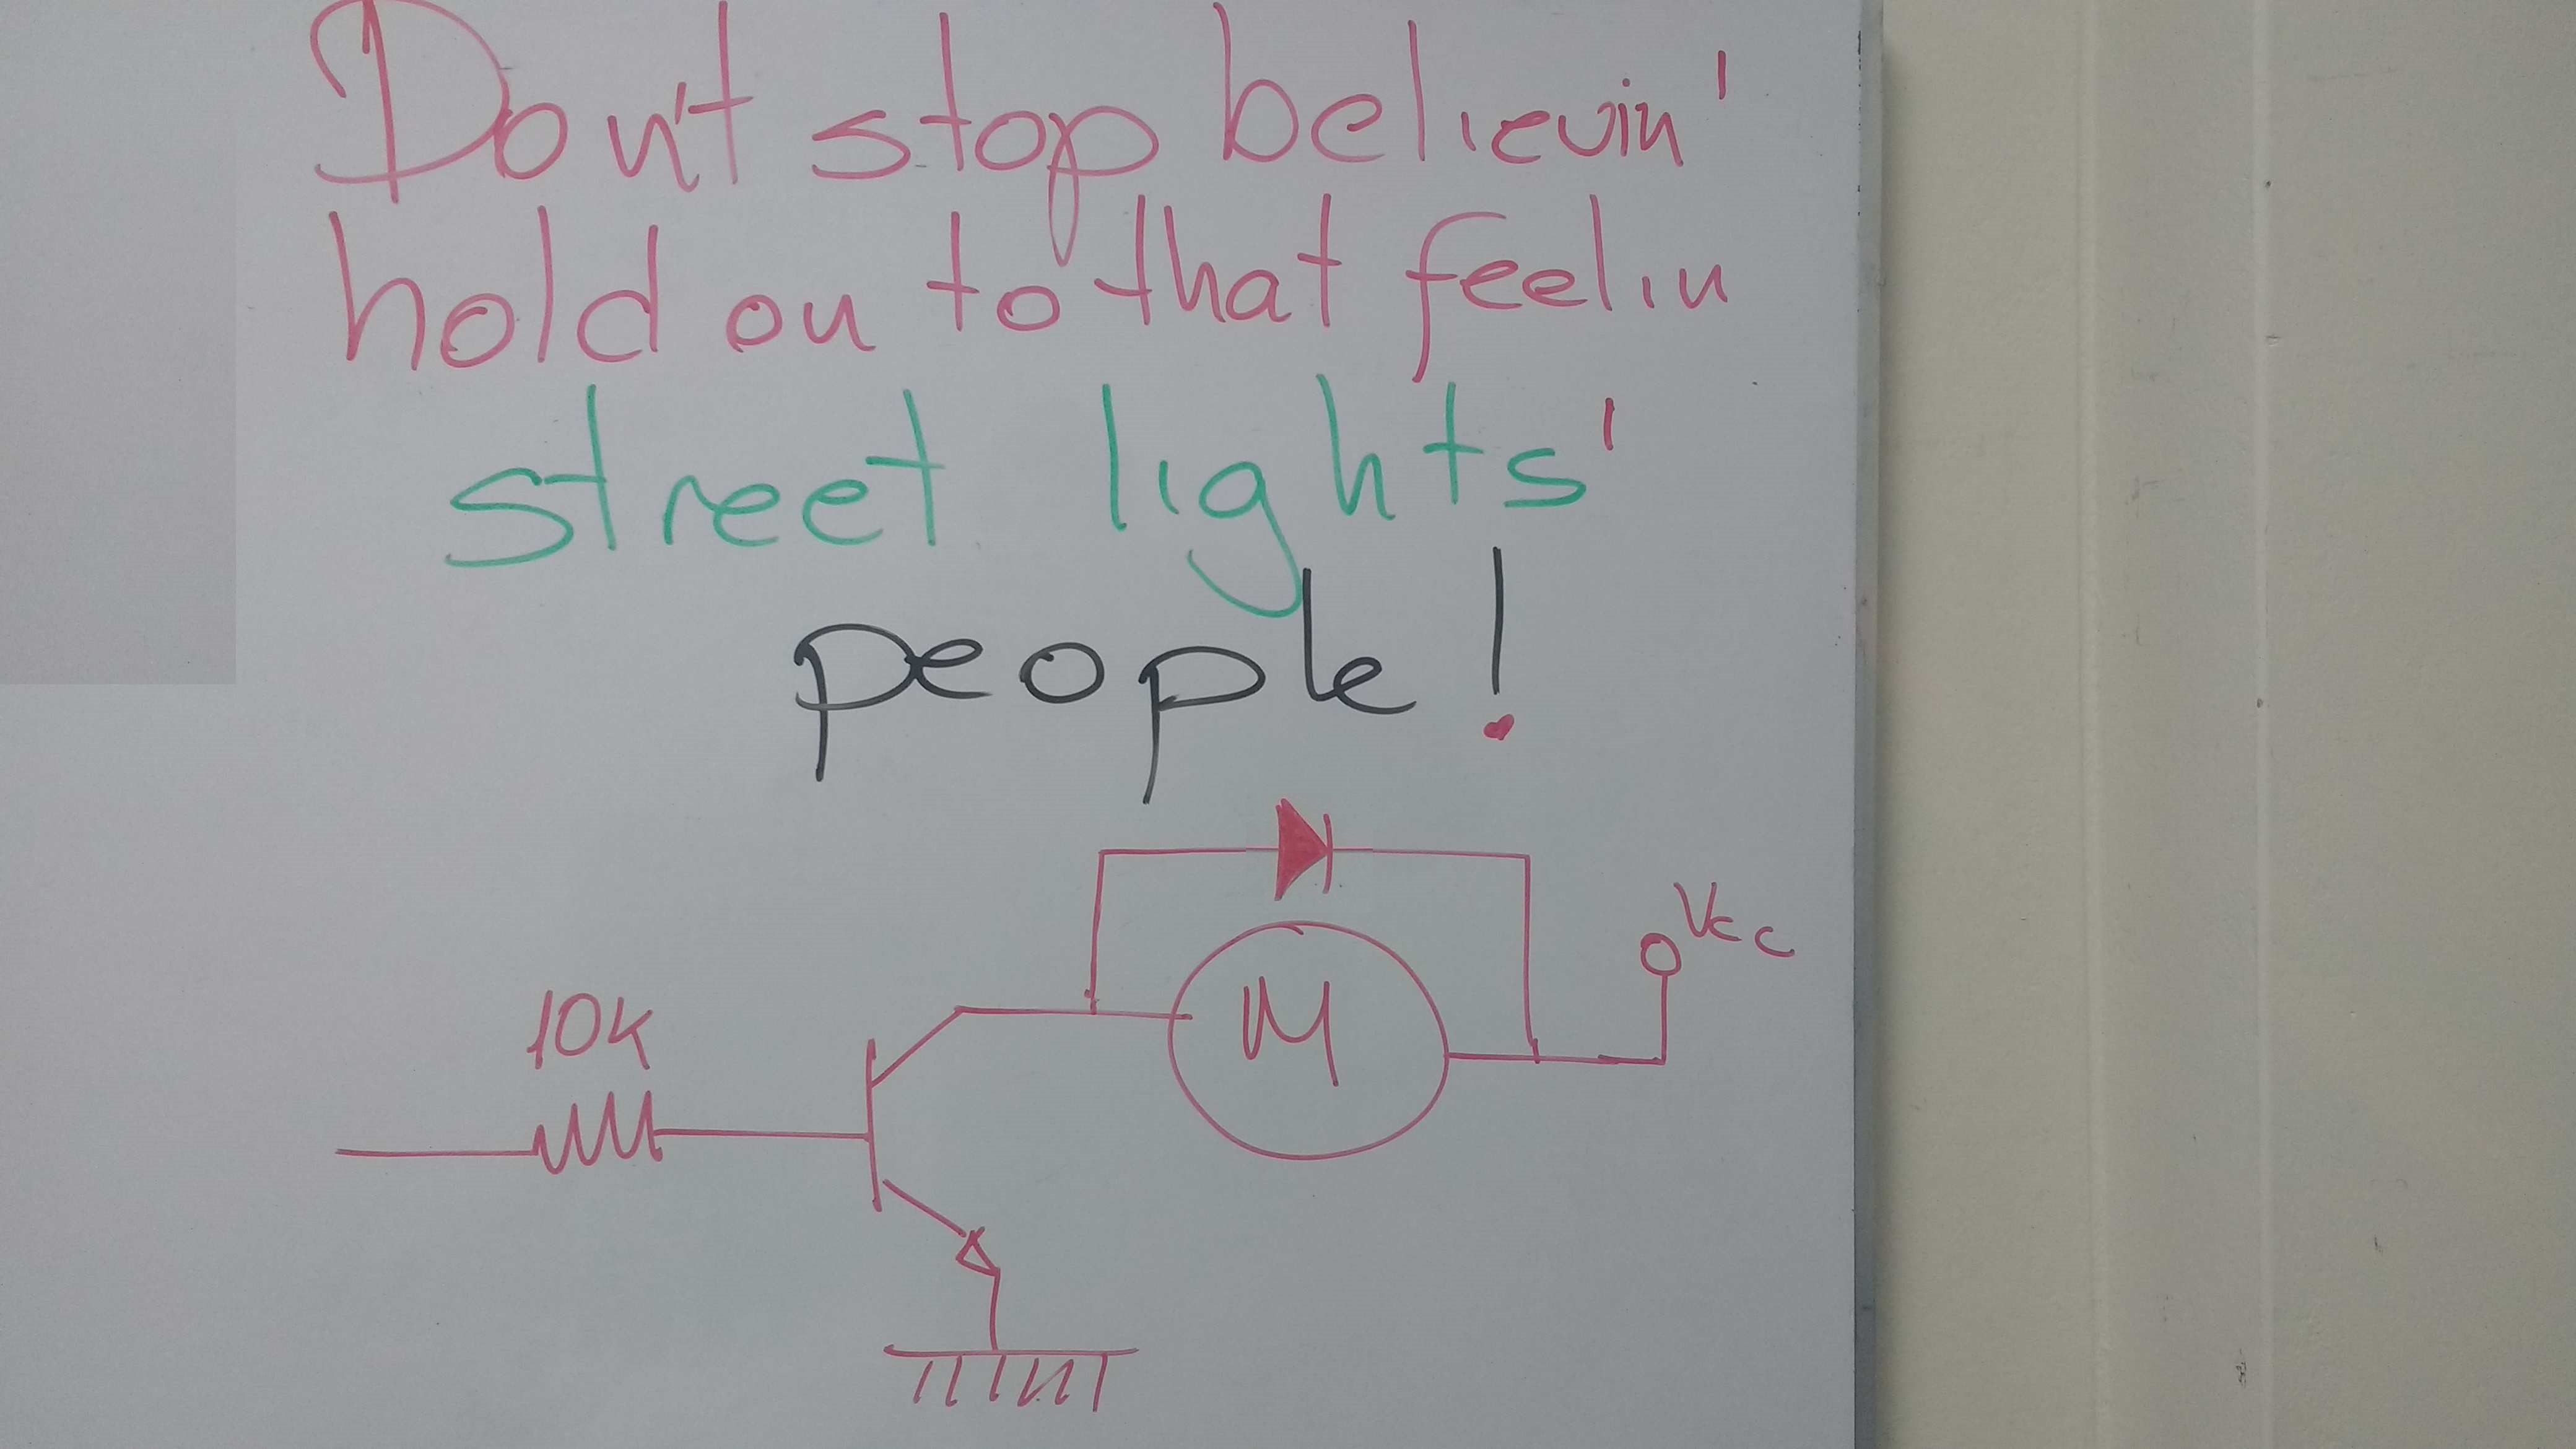 Don't stop believin'
hold on to that feelin
street lights'
people!
Vcc
10K
M